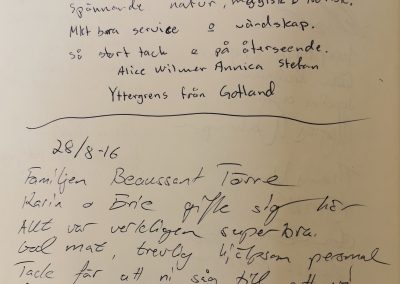 Spännande natur,
Mkt bra service o värdskap.
så stort tack o på återseende.
Alice Wilmer Annica Stefan
Yttergrens från Gotland
28/8-16
Familjen Beaussant Törne
Karin o Eric gifte sig här
Allt var verkligen superbra.
God mat, trevlig hjälpsam personal
Tack för att ni såg till att